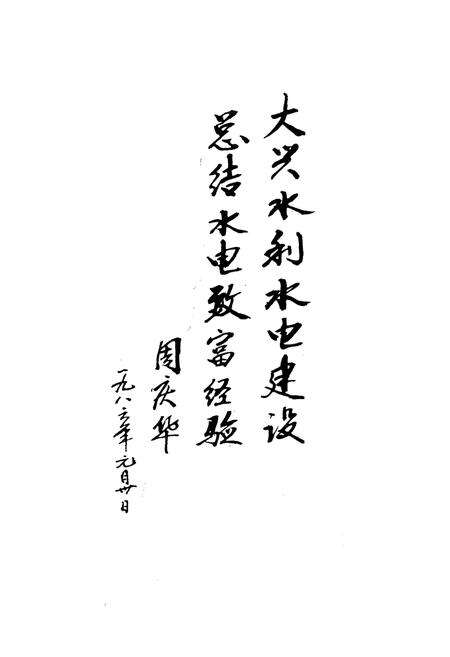 大兴水利水电建设
总结水电致富经验
周庆华
一九八六年元月卅日